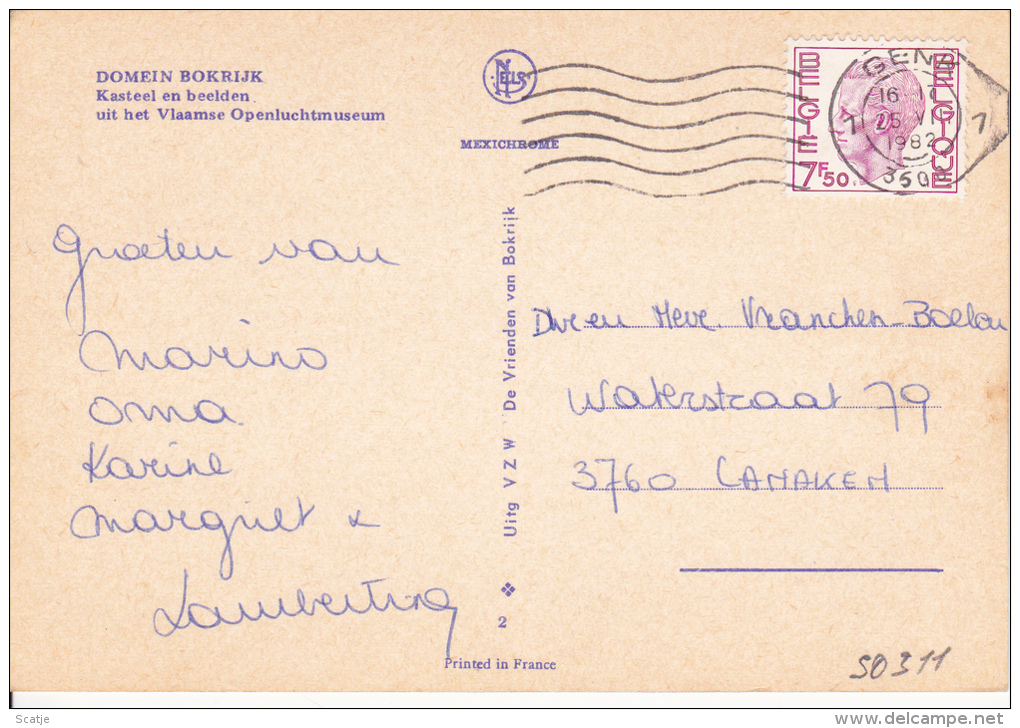 DOMEIN BOKRIJK
Kasteel en beelden
uit het Vlaamse Openluchtmuseum
NELS
MEXICHROME
BELGIE
BELGIQUE
7F50
GENK
16
1982
1
1
Groeten van
Marino
oma
Karine
Margriet &
Lambertine
Uitg VZW De Vrienden van Bokrijk
2
Printed in France
Dhr en Mevr. Vrancken-Boelen
Waterstraat 79
3760 LANAKEN
50311
Scatje
www.delcampe.net